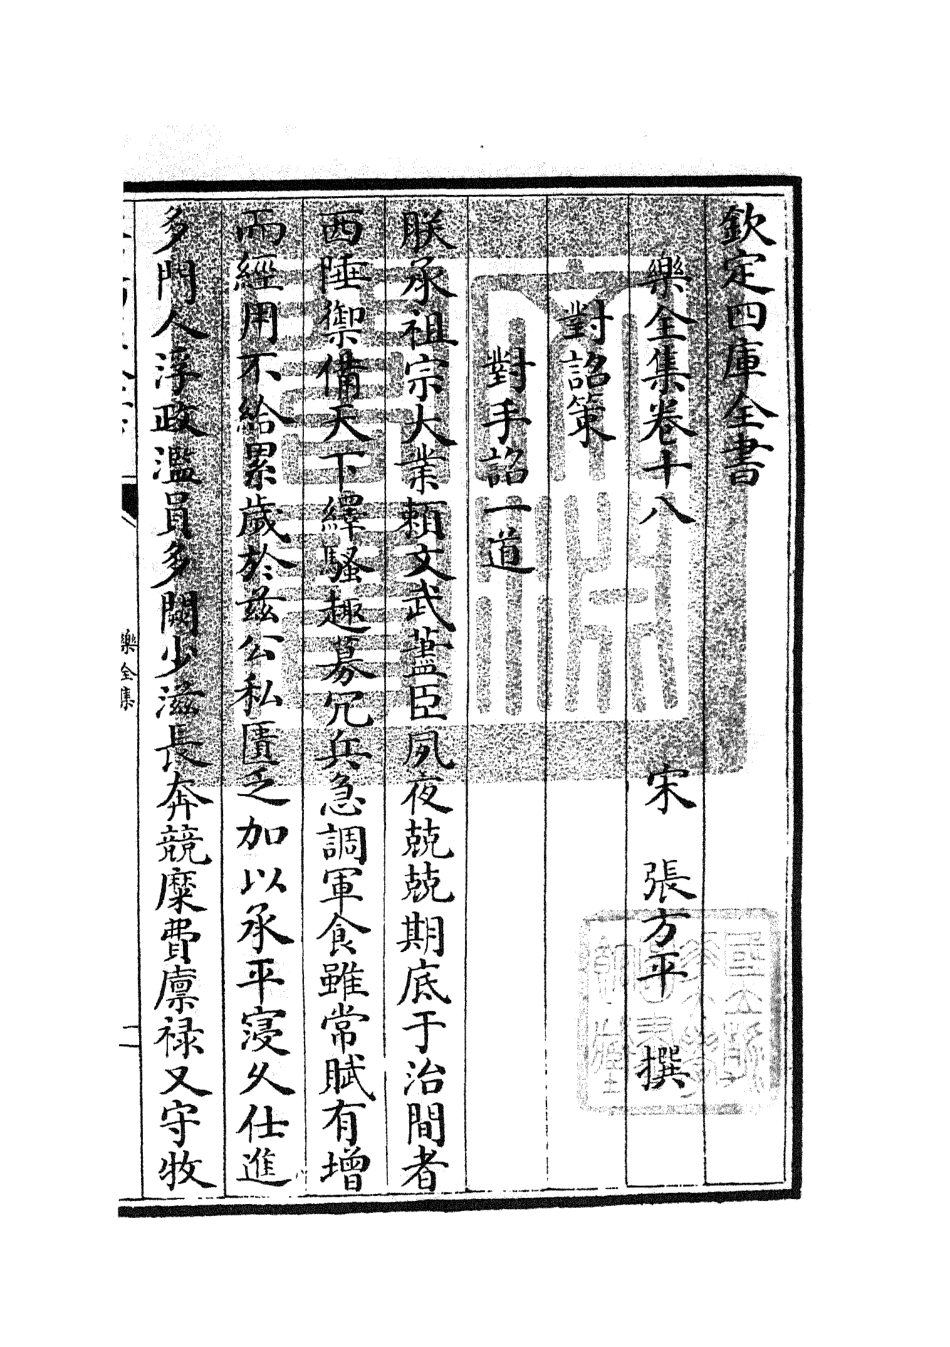 欽定四庫全書
樂全集卷十八 宋 張方平 撰
對詔策
對手詔一道
朕承祖宗大業賴文武藎臣夙夜兢兢期底于治間者
西陲禦備天下繹騷趣募冗兵急調軍食雖常賦有增
而經用不給累歲於兹公私匱乏加以承平寖久仕進
多門人浮政濫員多闕少滋長奔競糜費廪禄又守牧
樂全集